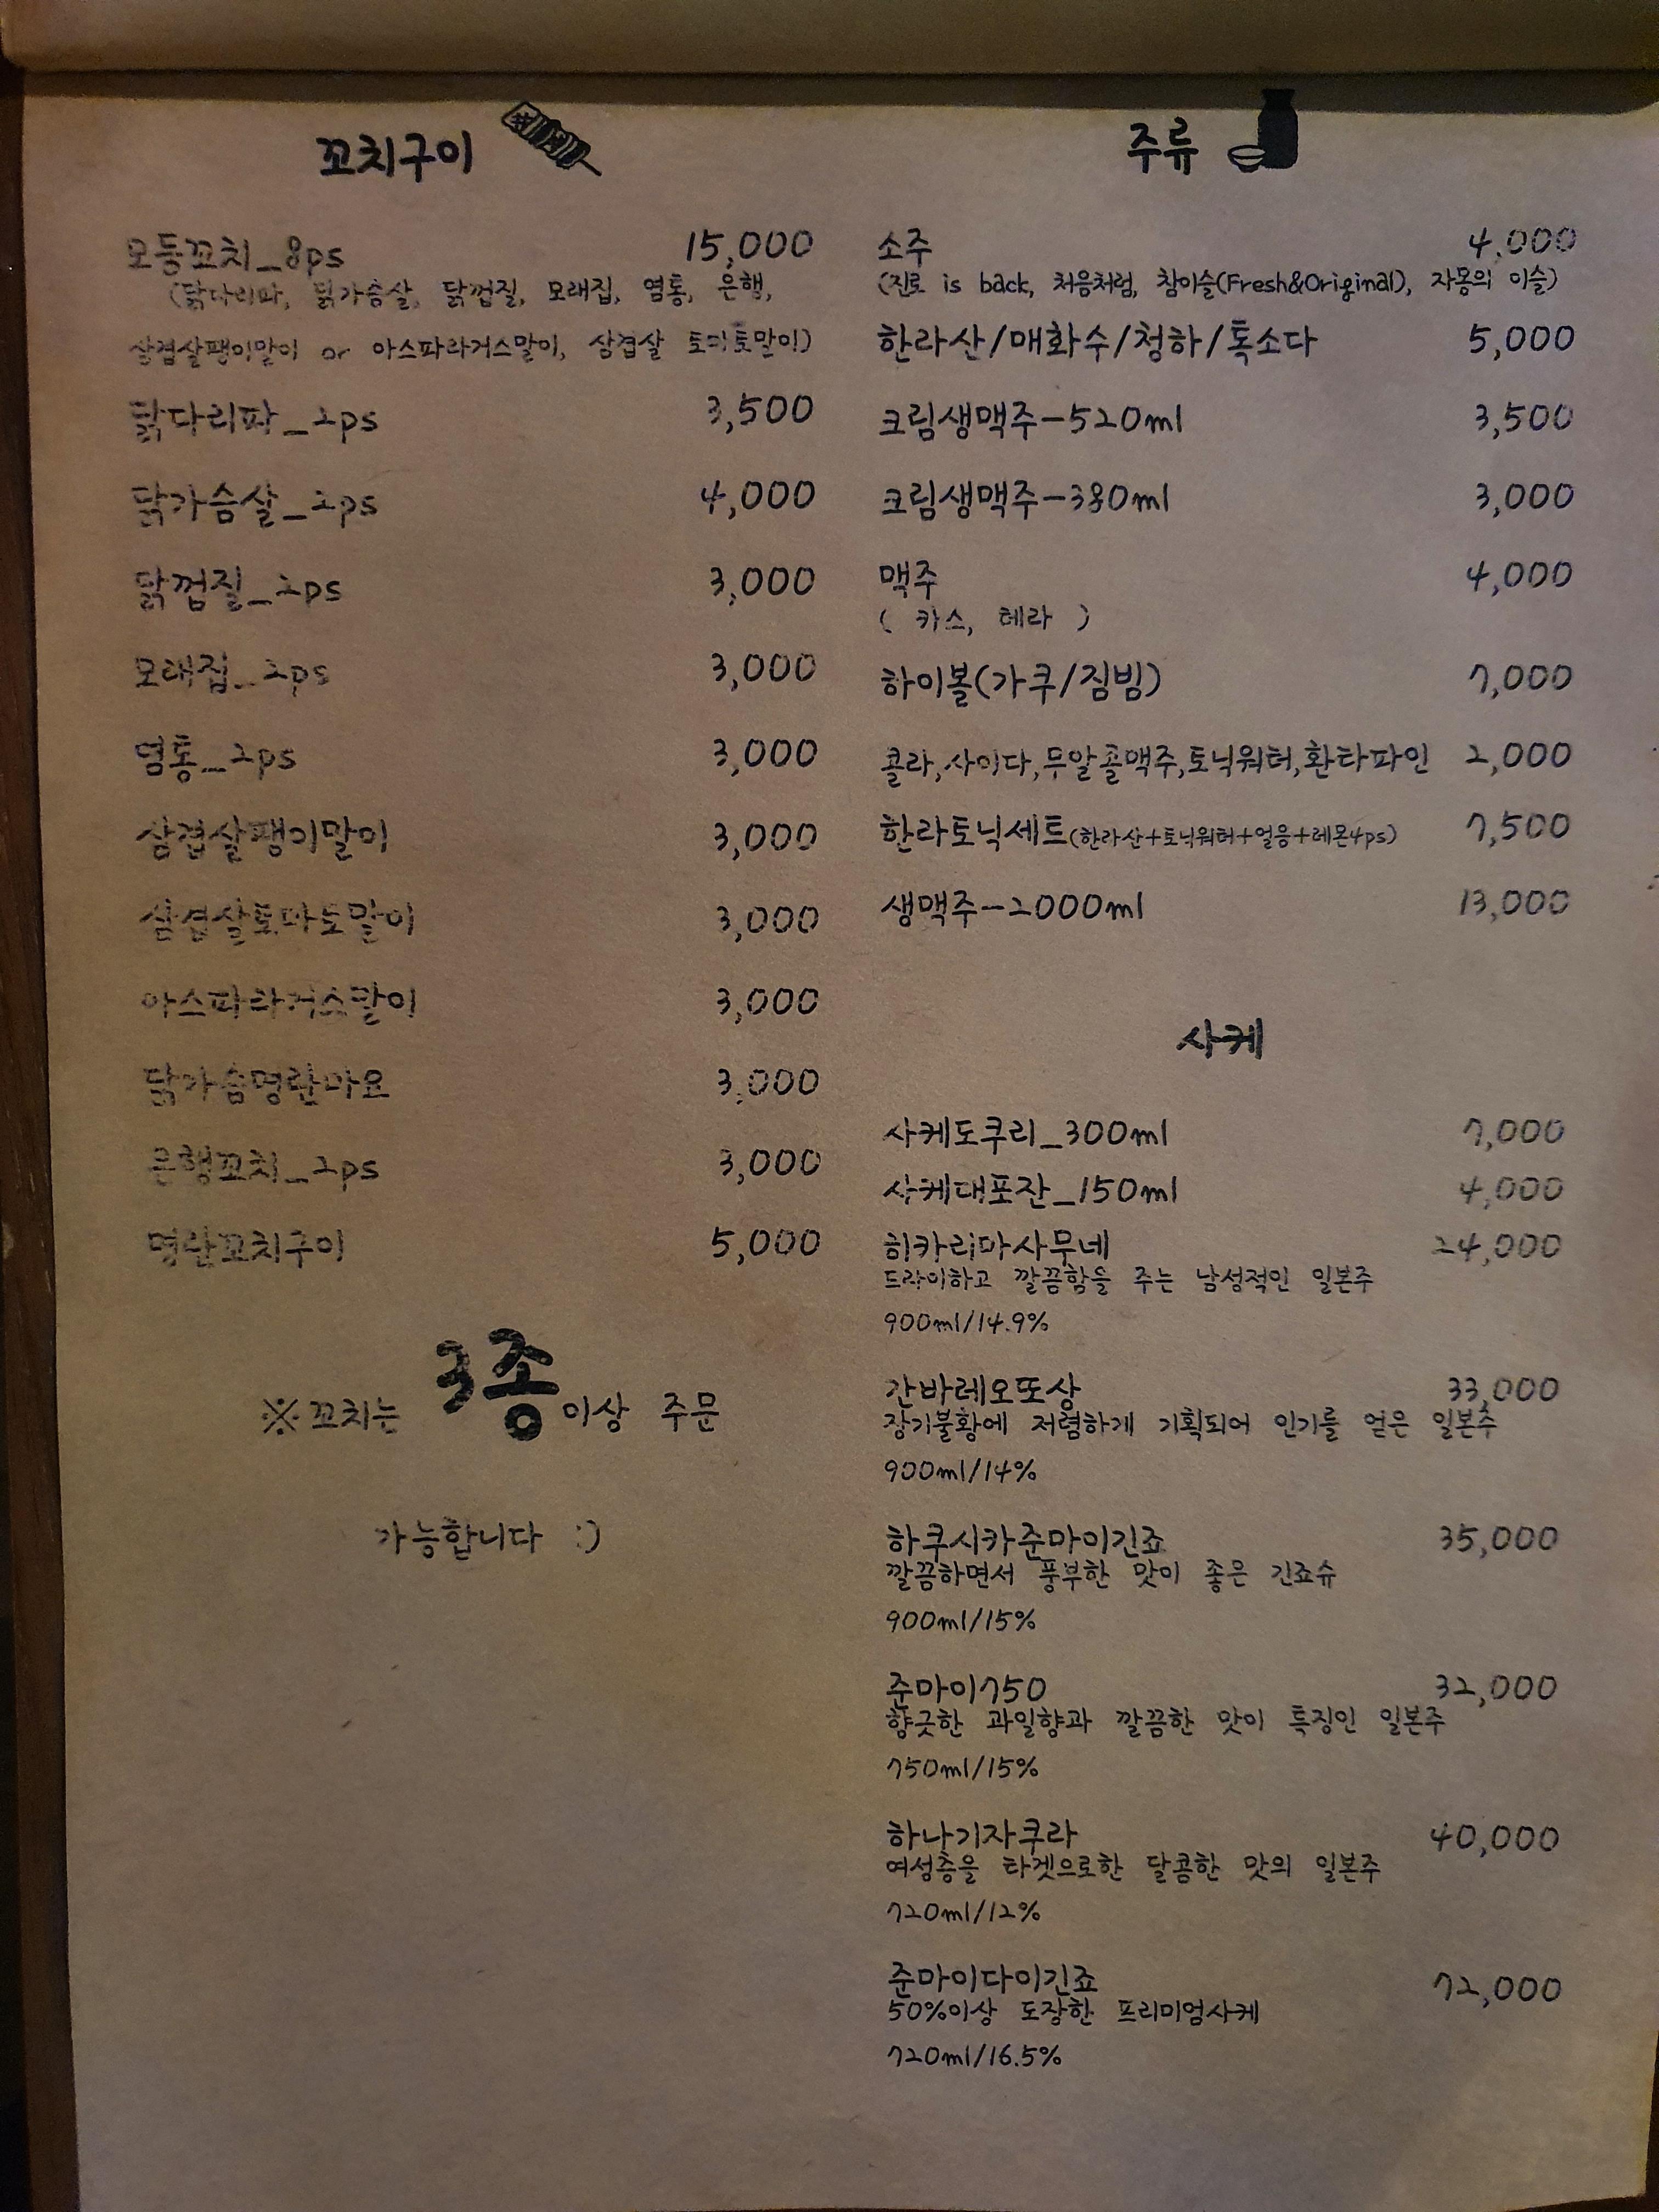 꼬치구이
모듬꼬치_8ps 15,000
(닭다리파, 닭가슴살, 닭껍질, 모래집, 염통, 은행,
삼겹살팽이말이 or 아스파라거스말이, 삼겹살 토마토말이)
닭다리파_2ps 3,500
닭가슴살_2ps 4,000
닭껍질_2ps 3,000
모래집_2ps 3,000
염통_2ps 3,000
삼겹살팽이말이 3,000
삼겹살토마토말이 3,000
아스파라거스말이 3,000
닭가슴명란마요 3,000
은행꼬치_2ps 3,000
명란꼬치구이 5,000
※꼬치는 3종이상 주문
가능합니다 :)
주류
소주 4,000
(진로 is back, 처음처럼, 참이슬(Fresh&Original), 자몽의 이슬)
한라산/매화수/청하/톡소다 5,000
크림생맥주-520ml 3,500
크림생맥주-380ml 3,000
맥주 4,000
( 카스, 테라 )
하이볼(가쿠/짐빔) 7,000
콜라,사이다,무알콜맥주,토닉워터,환타파인 2,000
한라토닉세트(한라산+토닉워터+얼음+레몬4ps) 7,500
생맥주-2000ml 13,000
사케
사케도쿠리_300ml 7,000
사케대포잔_150ml 4,000
히카리마사무네 24,000
드라이하고 깔끔함을 주는 남성적인 일본주
900ml/14.9%
간바레오또상 33,000
장기불황에 저렴하게 기획되어 인기를 얻은 일본주
900ml/14%
하쿠시카준마이긴죠 35,000
깔끔하면서 풍부한 맛이 좋은 긴죠슈
900ml/15%
준마이750 32,000
향긋한 과일향과 깔끔한 맛이 특징인 일본주
750ml/15%
하나기자쿠라 40,000
여성층을 타겟으로한 달콤한 맛의 일본주
720ml/12%
준마이다이긴죠 72,000
50%이상 도장한 프리미엄사케
720ml/16.5%